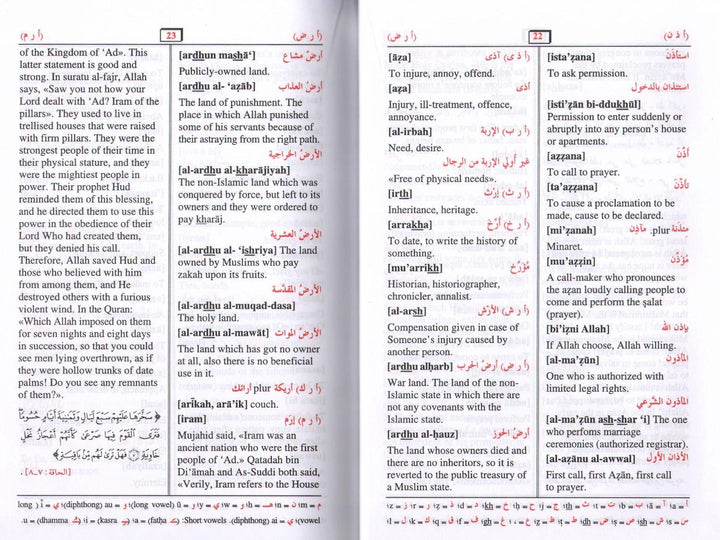 (أ ذ ن)
22
(أ ر ض)
[ista’ẓana] استأذَنَ
To ask permission.
استئذان بالدخول
[isti’ẓān bi-ddukhūl]
Permission to enter suddenly or
abruptly into any person's house
or apartments.
[aẓẓana] أَذَّنَ
To call to prayer.
[ta’aẓẓana] تأذّنَ
To cause a proclamation to be
made, cause to be declared.
[mi’ẓanah] مئذنَة .plur مآذِن
Minaret.
[mu’aẓẓin] مُؤَذِّن
A call-maker who pronounces
the aẓan loudly calling people to
come and perform the ṣalat
(prayer).
[bi’iẓni Allah] بإذن الله
If Allah choose, Allah willing.
[al-ma’ẓūn] المأذون
One who is authorized with
limited legal rights.
المأذون الشرْعي
[al-ma’ẓūn ash-shar ‘i] The one
who perfoms marriage
ceremonies (authorized registrar).
[al-aẓānu al-awwal] الأذان الأول
First call, first Aẓān, first call
to prayer.
[āẓa] (أ ذ ى) آذى
To injure, annoy, offend.
[aẓa] أذى
Injury, ill-treatment, offence,
annoyance.
[al-irbah] (أ ر ب) الإربة
Need, desire.
غير أُولي الإربة من الرجال
«Free of physical needs».
[irth] (أ ر ث) إرْث
Inheritance, heritage.
[arrakha] (أ ر خ) أَرَّخ
To date, to write the history of
something.
[mu’arrikh] مُؤَرِّخ
Historian, historiographer,
chronicler, annalist.
[al-arsh] (أ ر ش) الأرْش
Compensation given in case of
Someone's injury caused by
another person.
[ardhu alḥarb] (أ ر ض) أرضُ الحَرب
War land. The land of the non-
Islamic state in which there are
not any covenants with the
Islamic state.
[ardhu al-ḥauz] أرضُ الحَوز
The land whose owners died and
there are no inheritors, so it is
reverted to the public treasury of
a Muslim state.
(أ ر ض)
23
(أ ر م)
[ardhun mashā‘] أرضٌ مشاع
Publicly-owned land.
[ardhu al- ‘aẓāb] أرضُ العذاب
The land of punishment. The
place in which Allah punished
some of his servants because of
their astraying from the right path.
الأرضُ الخراجية
[al-ardhu al-kharājiyah]
The non-Islamic land which was
conquered by force, but left to its
owners and they were ordered to
pay kharāj.
الأرضُ العشرية
[al-ardhu al- ‘ishriya] The land
owned by Muslims who pay
zakah upon its fruits.
الأرضُ المقدَّسة
[al-ardhu al-muqad-dasa]
The holy land.
[al-ardhu al-mawāt] الأرضُ الموات
The land which has got no owner
at all, also there is no beneficial
use in it.
(أ ر ك) أريكة plur أرائك
[arīkah, arā’ik] couch.
[iram] (أ ر م) إرَم
Mujahid said, «Iram was an
ancient nation who were the first
people of ‘Ad.» Qatadah bin
Di‘āmah and As-Suddi both said,
«Verily, Iram refers to the House
of the Kingdom of ‘Ad». This
latter statement is good and
strong. In suratu al-fajr, Allah
says, «Saw you not how your
Lord dealt with ‘Ad? Iram of the
pillars». They used to live in
trellised houses that were raised
with firm pillars. They were the
strongest people of their time in
their physical stature, and they
were the mightiest people in
power. Their prophet Hud
reminded them of this blessing,
and he directed them to use this
power in the obedience of their
Lord Who had created them,
but they denied his call.
Therefore, Allah saved Hud and
those who believed with him
from among them, and He
destroyed others with a furious
violent wind. In the Quran:
«Which Allah imposed on them
for seven nights and eight days
in succession, so that you could
see men lying overthrown, as if
they were hollow trunks of date
palms! Do you see any remnants
of them?».
﴿ سَخَّرَهَا عَلَيْهِمْ سَبْعَ لَيَالٍ وَثَمَٰنِيَةَ أَيَّامٍ حُسُومًا
فَتَرَى ٱلْقَوْمَ فِيهَا صَرْعَىٰ كَأَنَّهُمْ أَعْجَازُ نَخْلٍ
خَاوِيَةٍ ۝ فَهَلْ تَرَىٰ لَهُم مِّنۢ بَاقِيَةٍ ﴾
[الحاقة: ٧ـ٨] .